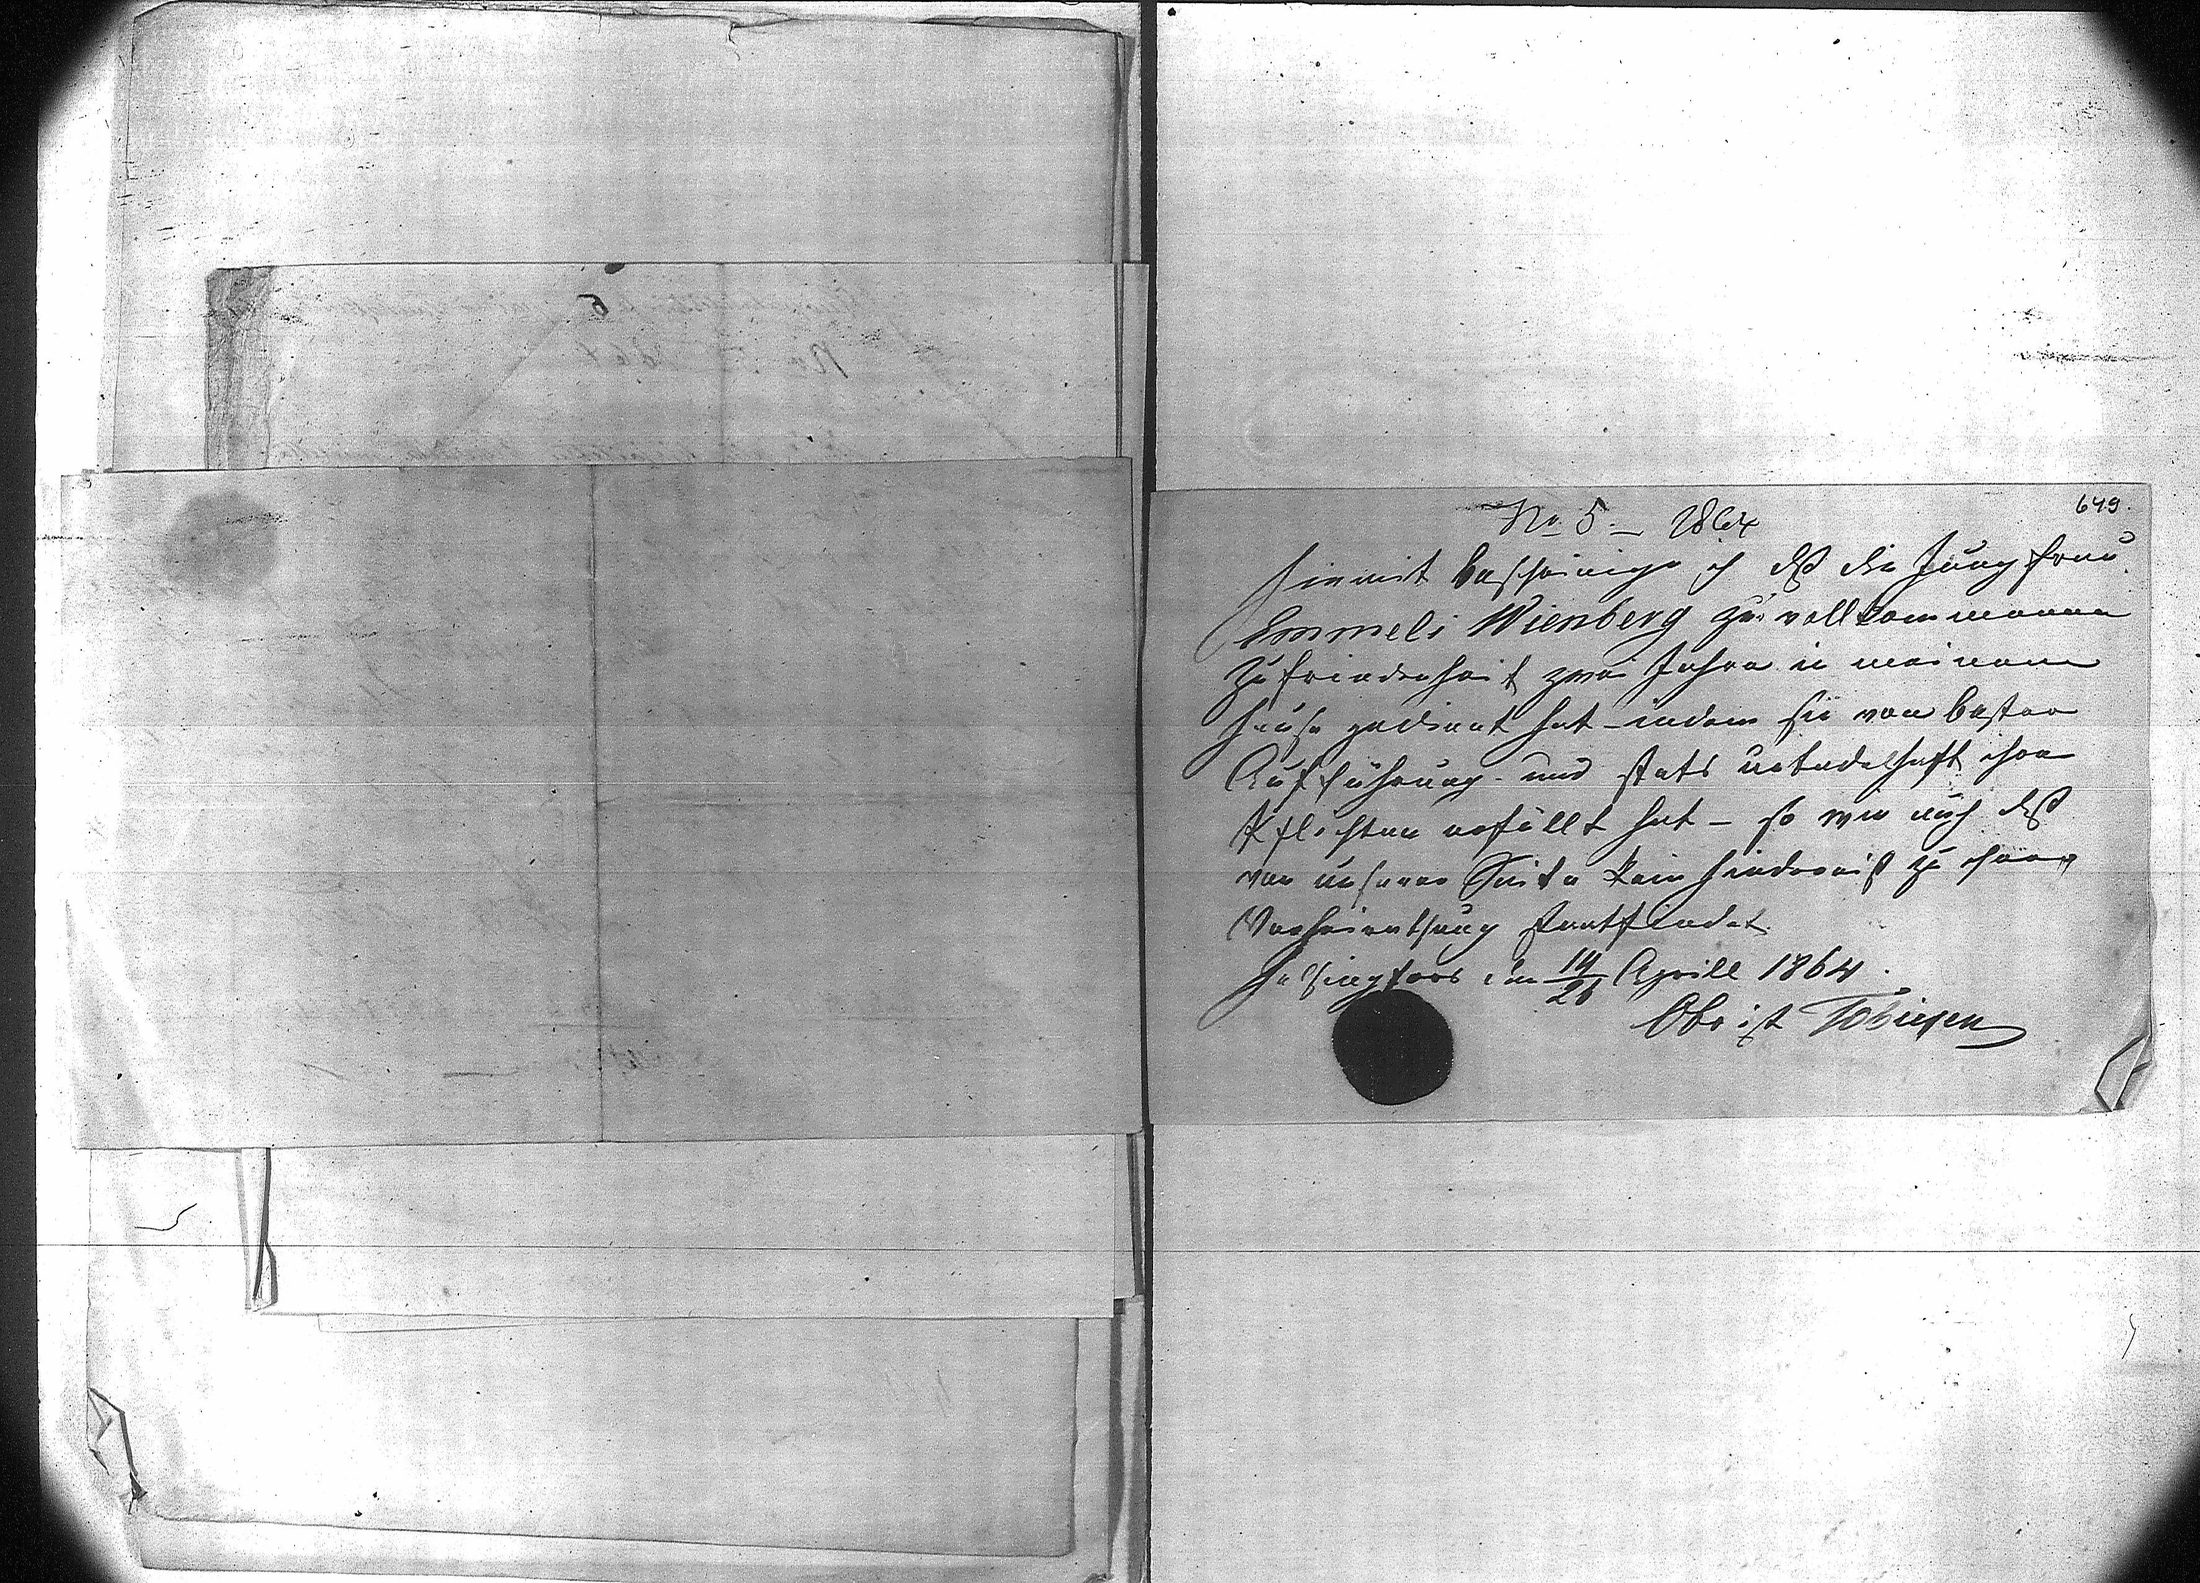 649.
No 5 – 1864
Hiermit bescheinige ich dß die Jungfrau
Emmeli Wienberg zu vollkommenen
Zufriedenheit zwei Jahre in meinem
Hause gedient hat – indem sie von bester
Aufführung – und stets untadelhaft ihre
Pflichten erfüllt hat – so wie auch dß
von unserer Seite kein Hinderniß zu ihrer
Verheirathung stattfindet.
Helsingfors den 14/26 Aprill 1864.
Obrist Tobiesen